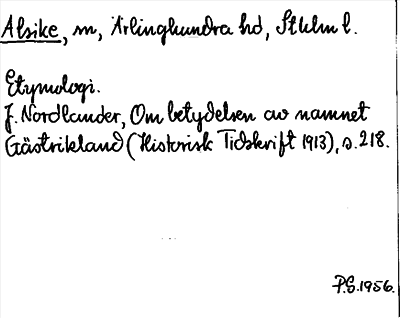 Alsike, sn, Ärlinghundra hd, Sthlm l.
Etymologi.
J. Nordlander, Om betydelsen av namnet
Gästrikland (Historisk Tidskrift 1913), s. 218.
P.S. 1956.